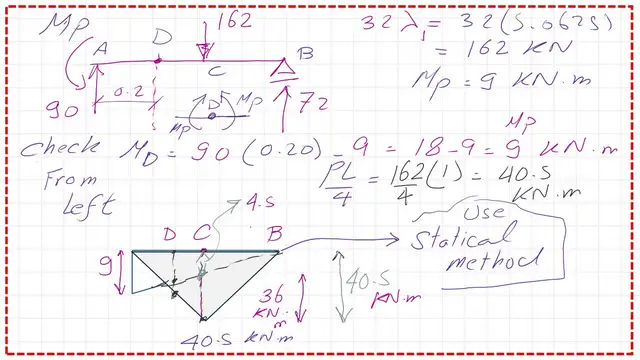 Mp 162 32 λ1 = 32 (5.0625)
= 162 KN
Mp = 9 KN.m
A D B
C
0.2
90 Mp D Mp 72
Mp
Check MD = 90 (0.20) - 9 = 18 - 9 = 9 KN.m
From
left
PL/4 = 162/4 (1) = 40.5
KN.m
4.5
Use
Statical
method
D C B
9
36
KN.
m
40.5
KN.m
40.5 KN.m